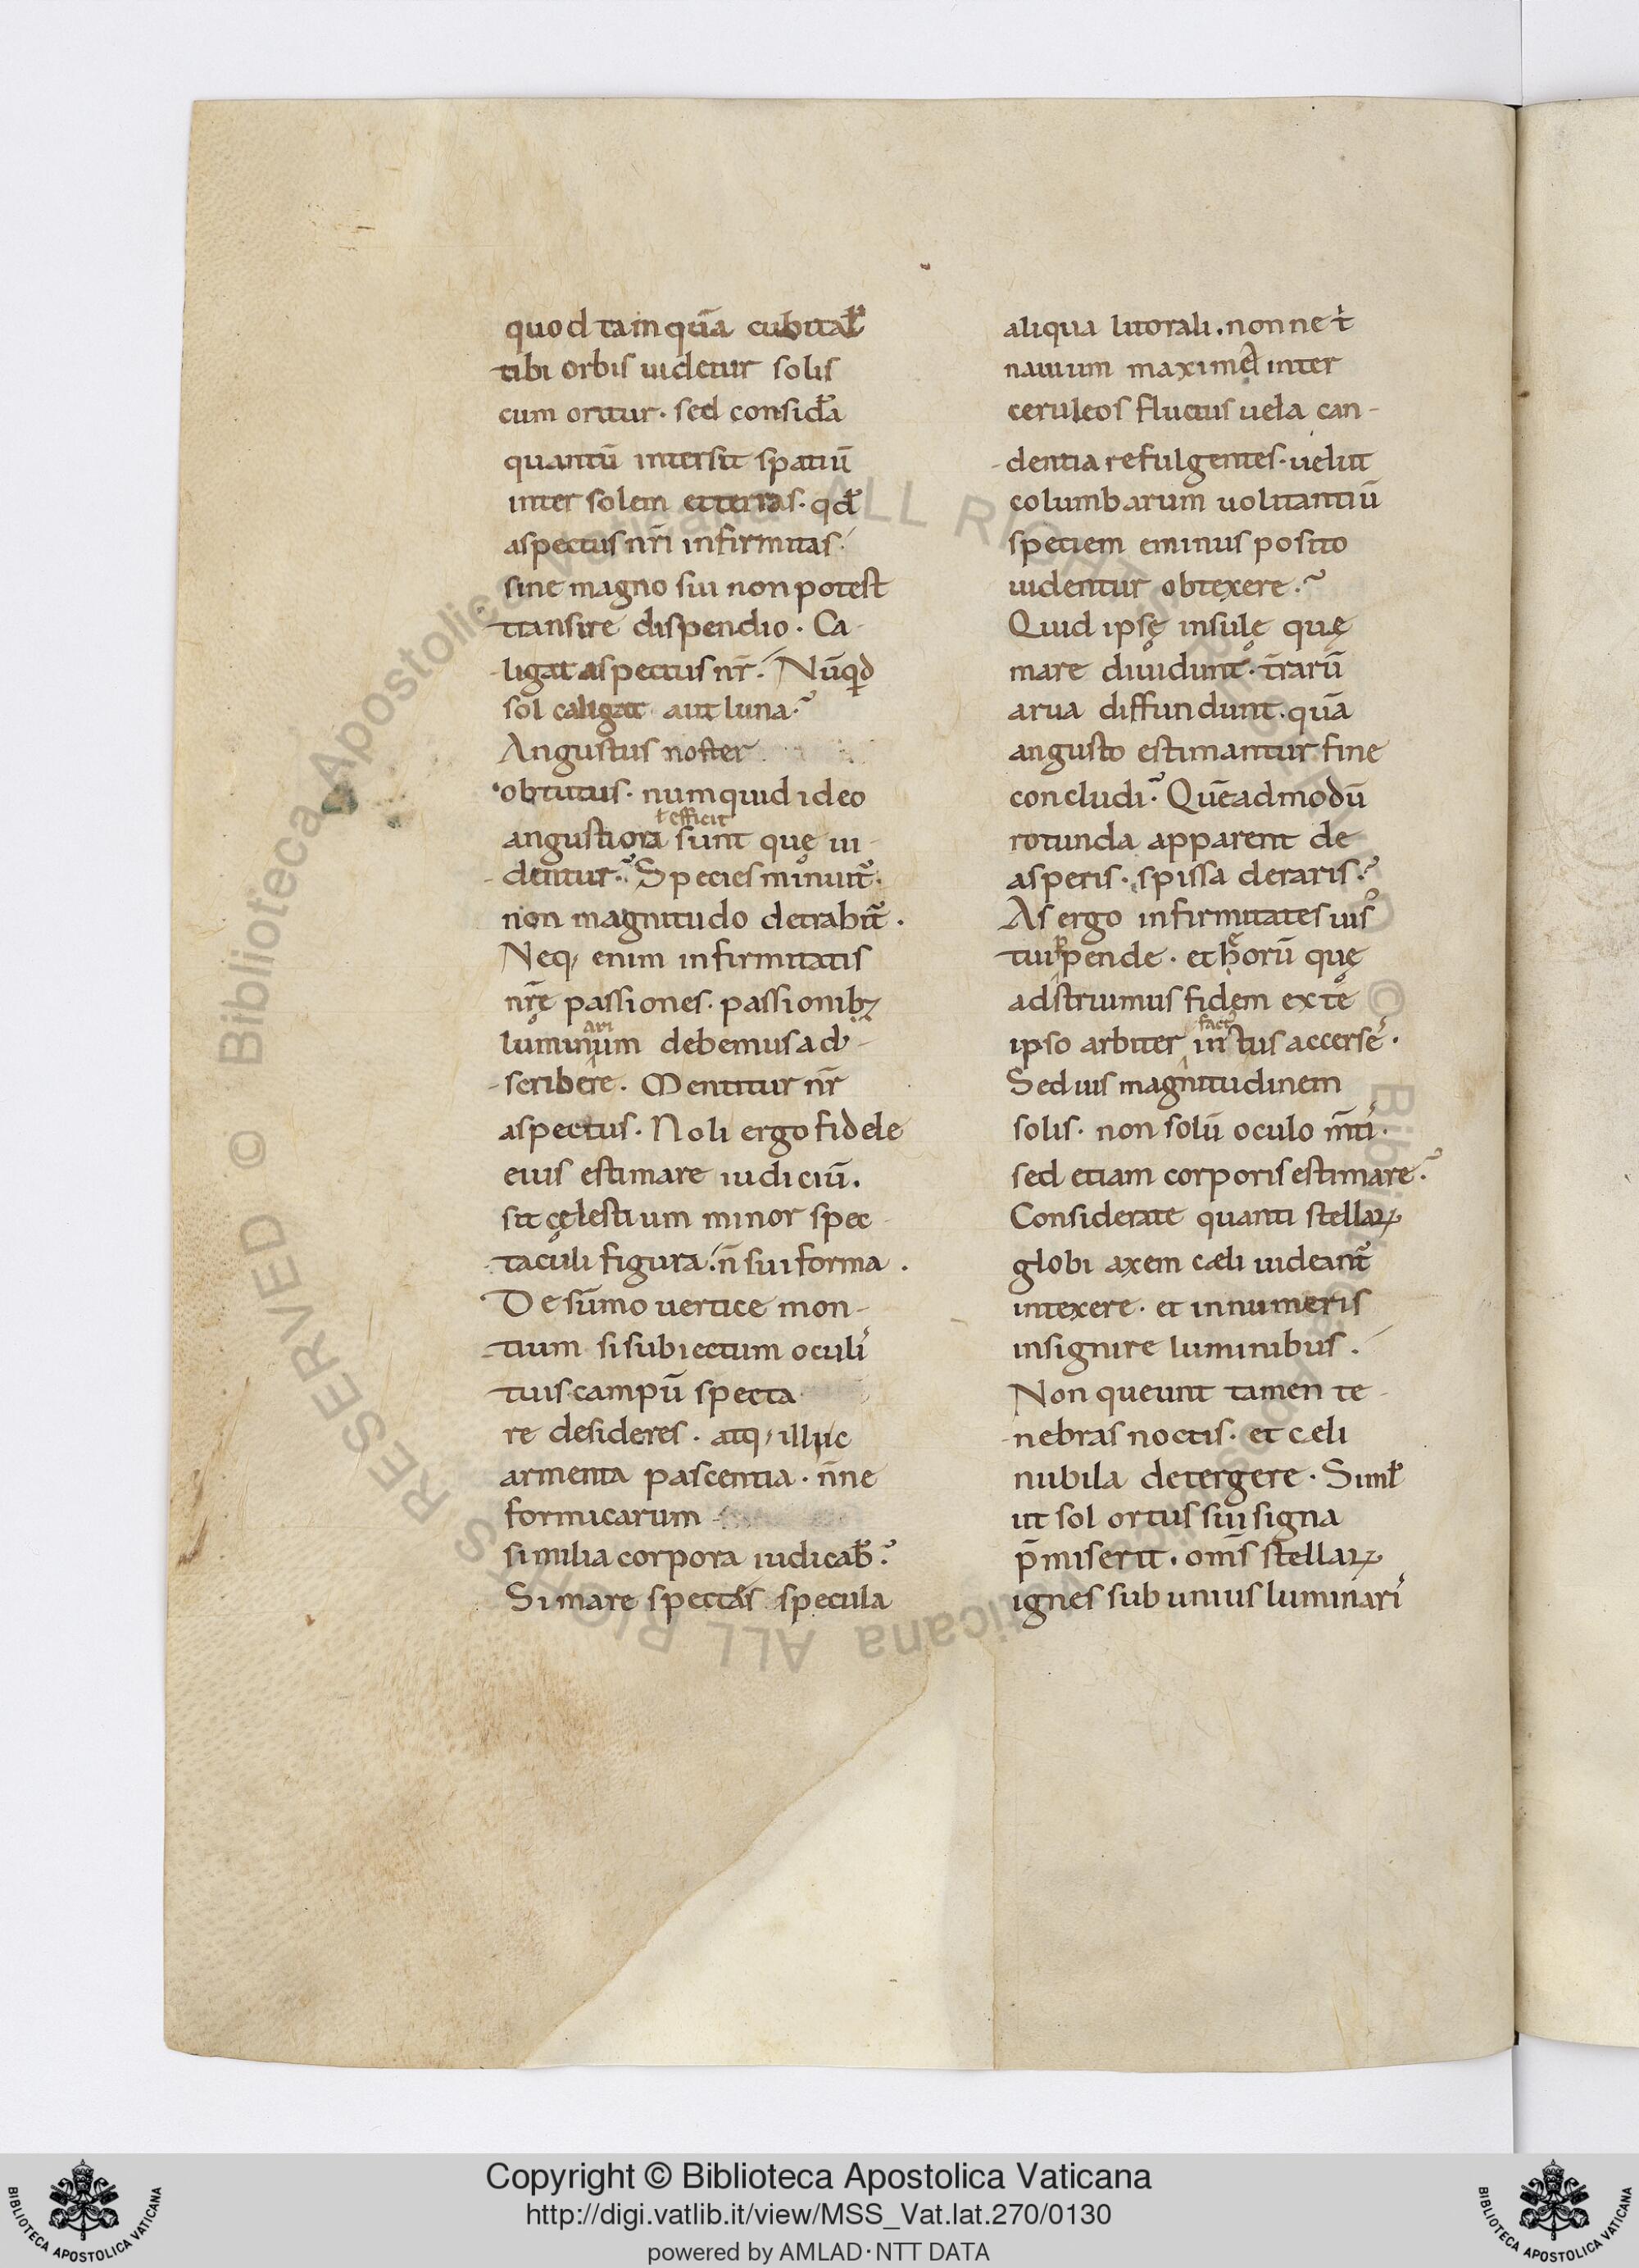 quod tamquā cubitał
tibi orbis uidetur solis
cum oritur. sed consid̄a
quantū intersit spatiū
inter solem et terras. qd̄
aspectus nr̄i infirmitas.
sine magno sui non potest
transire dispendio. Ca-
-ligat aspectus nr̄. Nūqd
sol caligat aut luna?
Angustus noster
obtutus. numquid ideo
ł efficit
angustiora sunt quę ui-
-dentur? Species minuit̄.
non magnitudo detrahit̄.
Neq; enim infirmitatis
nr̄ę passiones. passionib;
ari
luminum debemus ad-
-scribere. Mentitur nr̄
aspectus. Noli ergo fidele
eius estimare iudiciū.
sit cęlestium minor spec-
-taculi figura. n̄ sui forma.
De sūmo uertice mon-
-tium si subiectum oculi
tuis campū specta
re desideres. atq; illuc
armenta pascentia. n̄ne
formicarum
similia corpora iudicab̄?
Si mare spectas specula
aliqua litorali. nonne t
nauium maxime inter
ceruleos fluctus uela can-
-dentia refulgentes. uelut
columbarum uolitantiū
speciem eminus posito
uidentur obtexere?
Quid ipsę insulę quę
mare diuidunt. t̄rarū
arua diffundunt. quā
angusto estimantur fine
concludi? Quēadmodū
rotunda apparent de
asperis. spissa de raris?
As ergo infirmitates uis
tui ppende. et horū quę
adstruimus fidem ex te
fact
ipso arbiter intus accerse.
Sed uis magnitudinem
solis. non solū oculo m̄ti.
sed etiam corporis estimare?
Considerate quanti stellaꝝ
globi axem cæli uideant̄
intexere. et innumeris
insignire luminibus.
Non queunt tamen te-
-nebras noctis. et cæli
nubila detergere. Simł
ut sol ortus sui signa
p̄miserit. om̄s stellaꝝ
ignes sub unius luminari
Copyright © Biblioteca Apostolica Vaticana
http://digi.vatlib.it/view/MSS_Vat.lat.270/0130
powered by AMLAD·NTT DATA
BIBLIOTECA APOSTOLICA VATICANA
BIBLIOTECA APOSTOLICA VATICANA